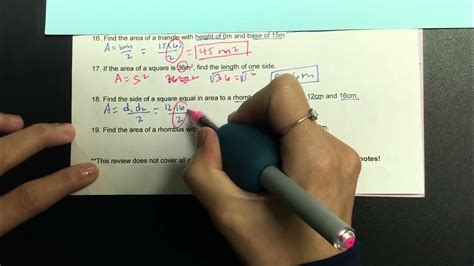 16. Find the area of a triangle with height of 6m and base of 15m.
A = bh/2 = 15(6)/2 = 45 m²
17. If the area of a square is 36m², find the length of one side.
A = s² √36 = √s² m
18. Find the side of a square equal in area to a rhom 12cm and 16cm.
A = d₁d₂/2 = 12·16/2
19. Find the area of a rhombus with m.
**This review does not cover all notes!